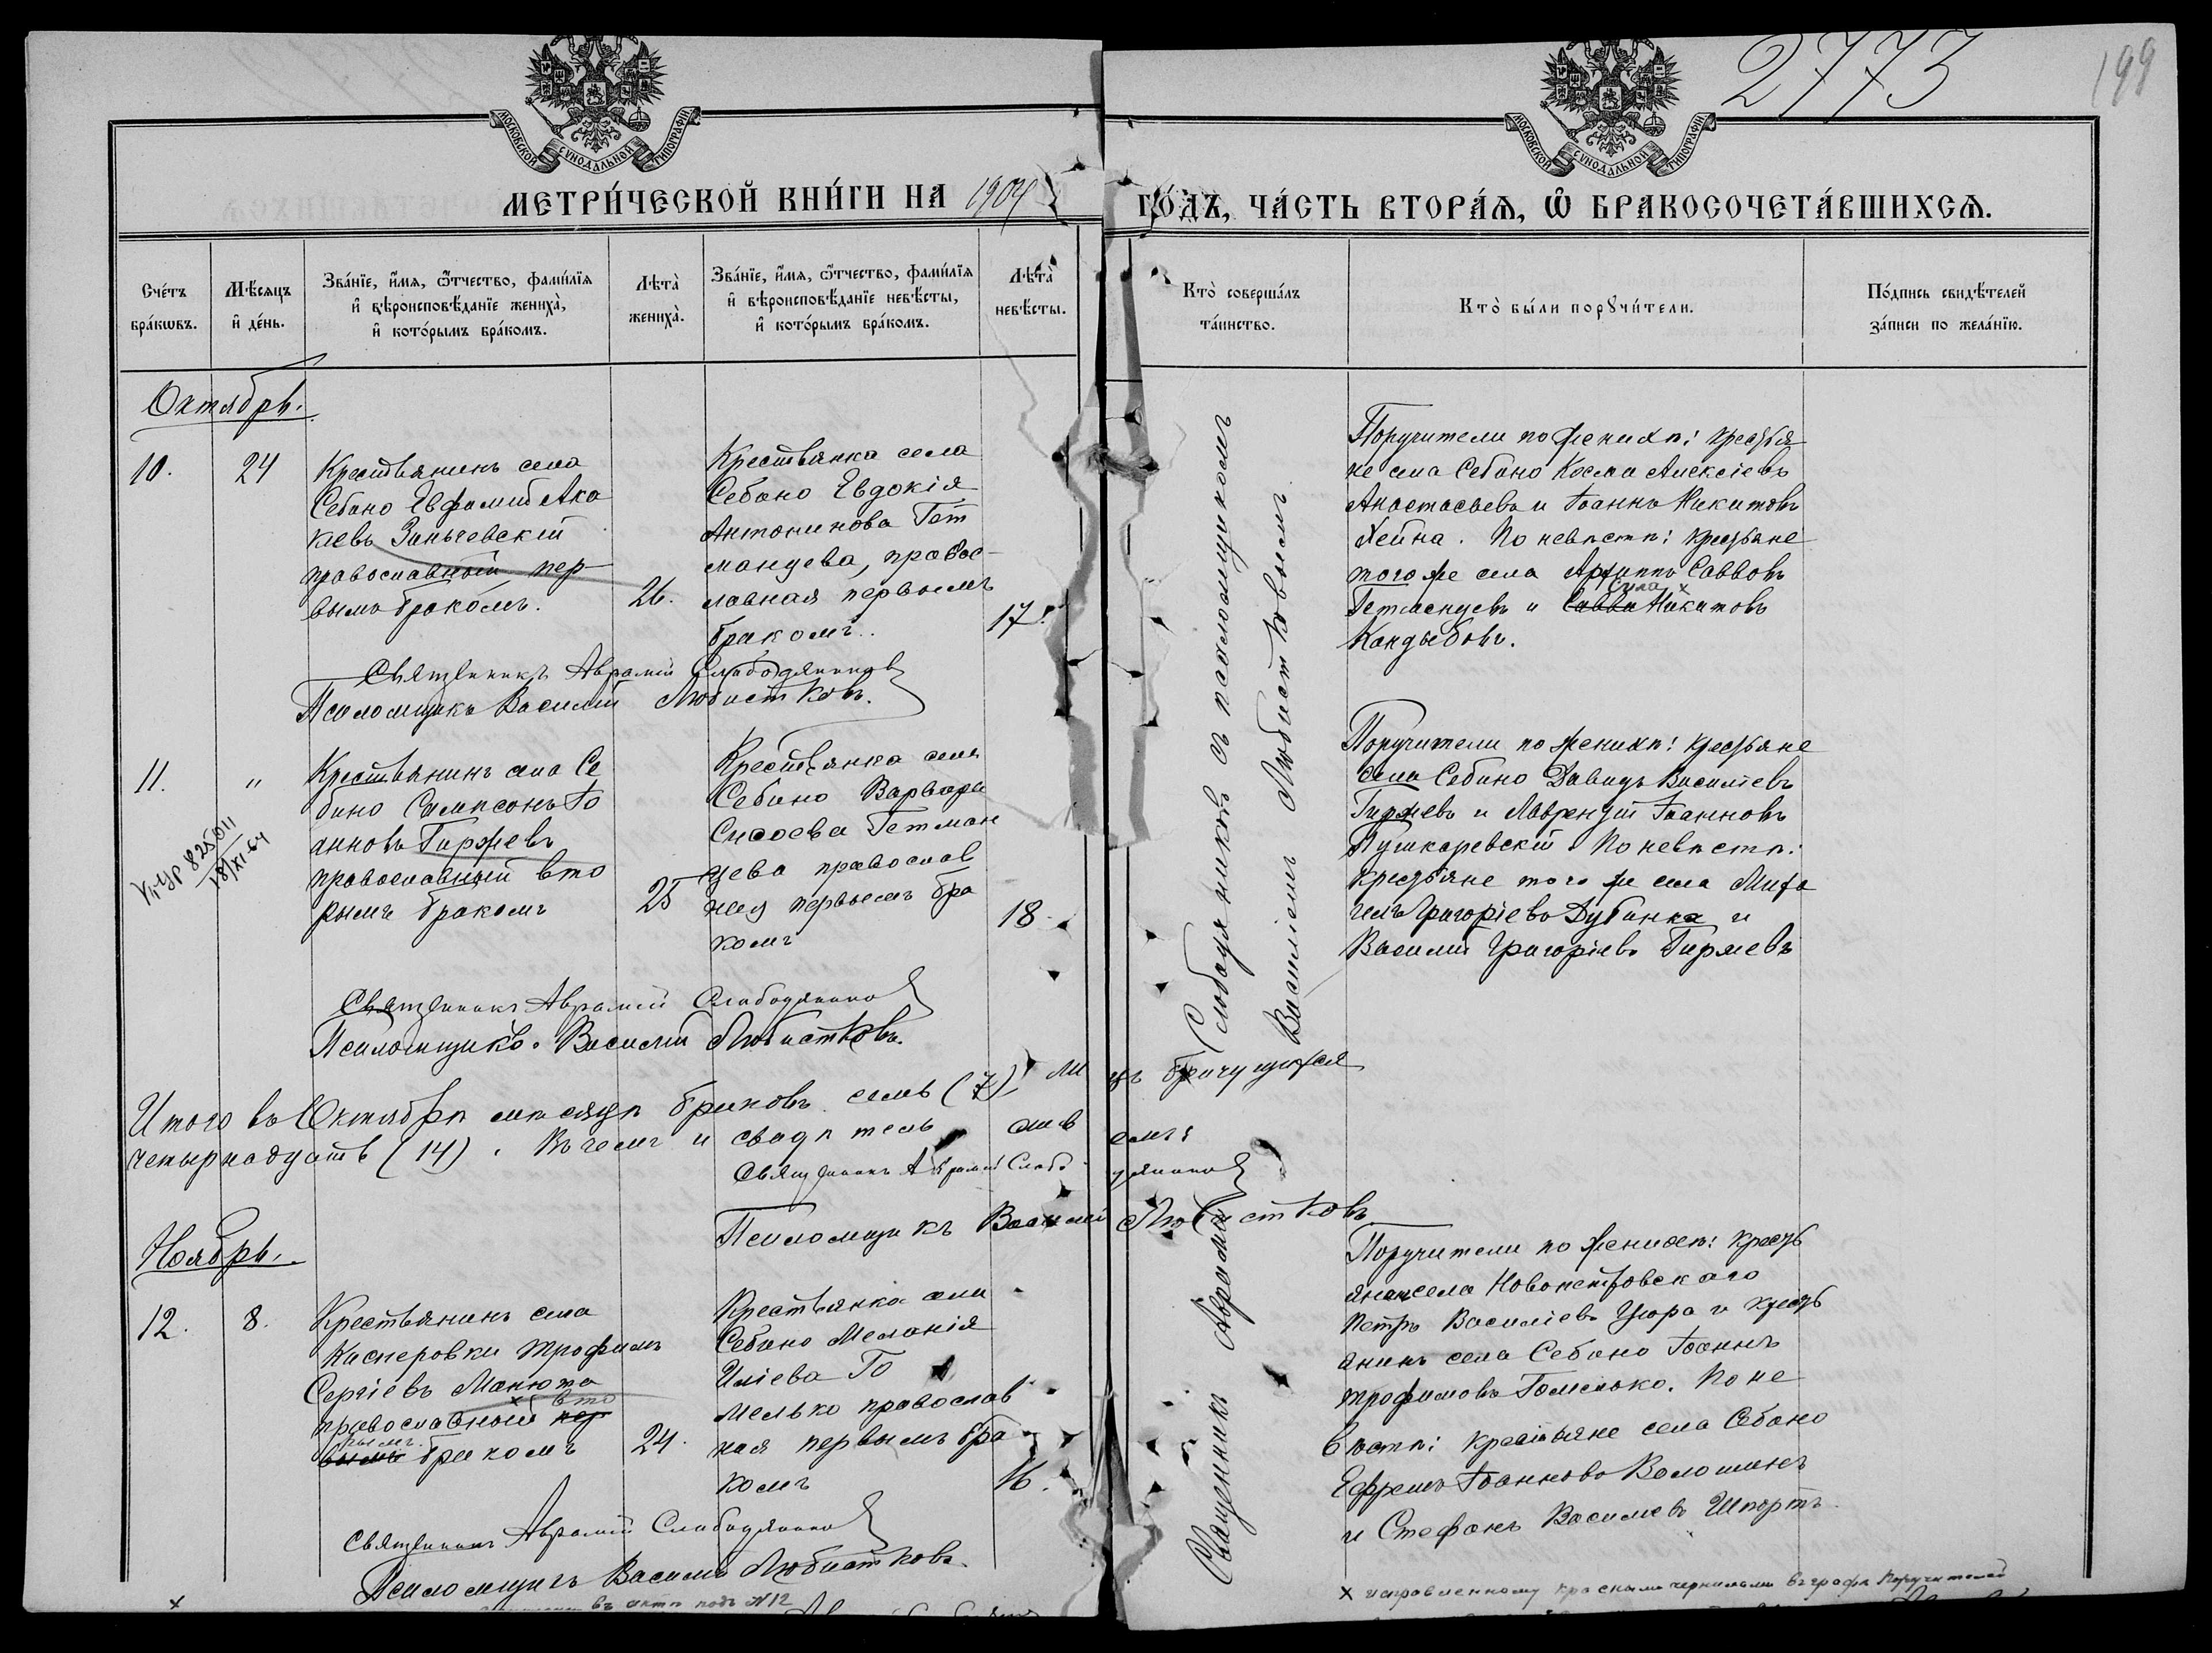 2773
199
МОСКОВСКОЙ СѴНОДАЛЬНОЙ ТИПОГРАФІИ
МОСКОВСКОЙ СѴНОДАЛЬНОЙ ТИПОГРАФІИ
МЕТРИ́ЧЕСКОЙ КНИ́ГИ НА 1904 ГО́ДЪ, ЧА́СТЬ ВТОРА́Ѧ, Ѽ БРАКОСОЧЕТА́ВШИХСѦ.
Сче́тъ
бра́кѡвъ.
Мѣ́сяцъ
и҆ де́нь.
Зва́нїе, и҆́мя, ѻ҆́тчество, фами́лїя
и҆ вѣроисповѣ́данїе жениха̀,
и҆ кото́рымъ бра́комъ.
Лѣта̀
жениха̀.
Зва́нїе, и҆́мя, ѻ҆́тчество, фами́лїя
и҆ вѣроисповѣ́данїе невѣ́сты,
и҆ кото́рымъ бра́комъ.
Лѣта̀
невѣ́сты.
Кто̀ соверша́лъ
та́инство.
Кто̀ бы́ли порꙋчи́тели.
По́дпись свидѣ́телей
за́писи по жела́нїю.
Октябрь.
10.
24
Крестьянинъ села
Себино Евфимій Ака
кіевъ Зиньчевскій
православный пер-
вымъ бракомъ.
26.
Крестьянка села
Себино Евдокія
Антонинова Гет
манцева, правос-
лавная первымъ
бракомъ.
17.
Поручители по женихѣ: крестья
не села Себино Косма Алексіевъ
Анастасьевъ и Іоаннъ Никитовъ
Хейна. По невѣстѣ: крестьяне
того же села Архиппъ Саввовъ
Сила x
Гетманцевъ и Савва Никитовъ
Кандыбовъ.
Священникъ Аврамій Слободяников
Псаломщикъ Василій Любистковъ.
11.
"
Крестьянинъ села Се
бино Сампсонъ Іо
анновъ Гиржевъ
православный вто
рымъ бракомъ
25
Крестьянка села
Себино Варвара
Сисоева Гетман
цева православ
ная первымъ бра
комъ
18.
825011
18/XI-64
Поручители по женихѣ: крестьяне
села Себино Давидъ Василіевъ
Гиржевъ и Лаврентій Іоанновъ
Пушкаревскій. По невѣстѣ:
крестьяне того же села Миха
илъ Григоріевъ Дубинка и
Василій Григоріевъ Гиржевъ
Священникъ Аврамій Слободяников
Псаломщикъ Василій Любистковъ.
Итого въ Октябрѣ мѣсяцѣ браковъ семь (7) лицъ брачущихся
четырнадцать (14). Въ чемъ и свидѣтельствуемъ:
Священникъ Аврамій Слободяников
Псаломщикъ Василій Любистковъ
Ноябрь.
12.
8.
Крестьянинъ села
Касперовки Трофимъ
Сергіевъ Манюта
x вто
православный пер
рымъ
вымъ бракомъ
24.
Крестьянка села
Себино Меланія
Иліева Го
мелько православ
ная первымъ бра
комъ
16.
Поручители по женихѣ: кресть
янинъ села Новопетровскаго
Петръ Василіевъ Цюра и кресть
янинъ села Себино Іоаннъ
Трофимовъ Гомелько. По не
вѣстѣ: крестьяне села Себино
Ефремъ Іоанновъ Волошинъ
и Стефанъ Василіевъ Шпортъ.
Священникъ Аврамій Слободяников
Псаломщикъ Василій Любистковъ.
Священникъ Аврамій Слободяниковъ съ псаломщикомъ
Василіемъ Любистковымъ.
x
въ актѣ подъ №12
x исправленному красными чернилами въ графѣ Поручителей